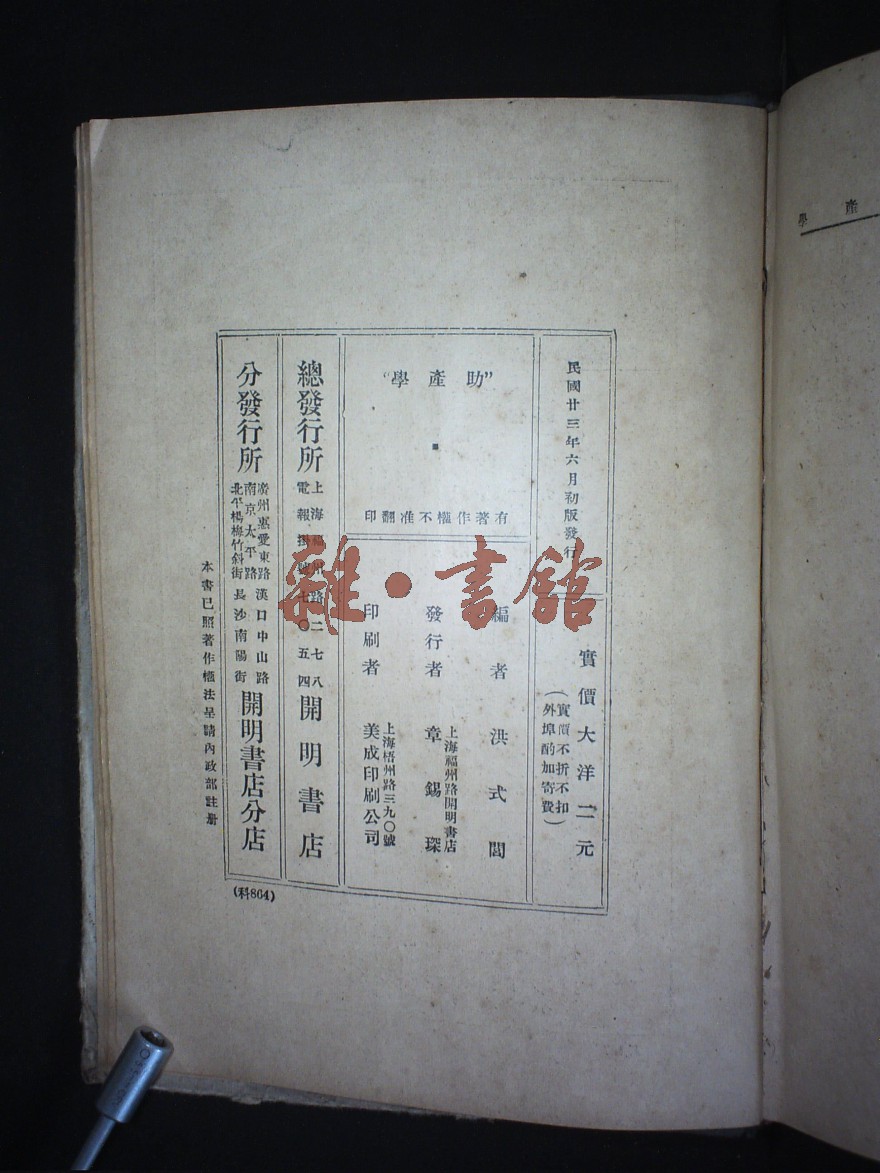 民國廿三年六月初版發行
實價大洋二元
（實價不折不扣
外埠酌加寄費）
"助產學"
有著作權不准翻印
編者 洪式閭
發行者 上海福州路開明書店
章錫琛
印刷者 上海梧州路三九〇號
美成印刷公司
總發行所 上海福州路二七八
電報掛號七〇五四 開明書店
分發行所 廣州惠愛東路 漢口中山路
南京太平路
北平楊梅竹斜街 長沙南陽街 開明書店分店
本書已照著作權法呈請內政部註册
(科864)
產學
雜·書館